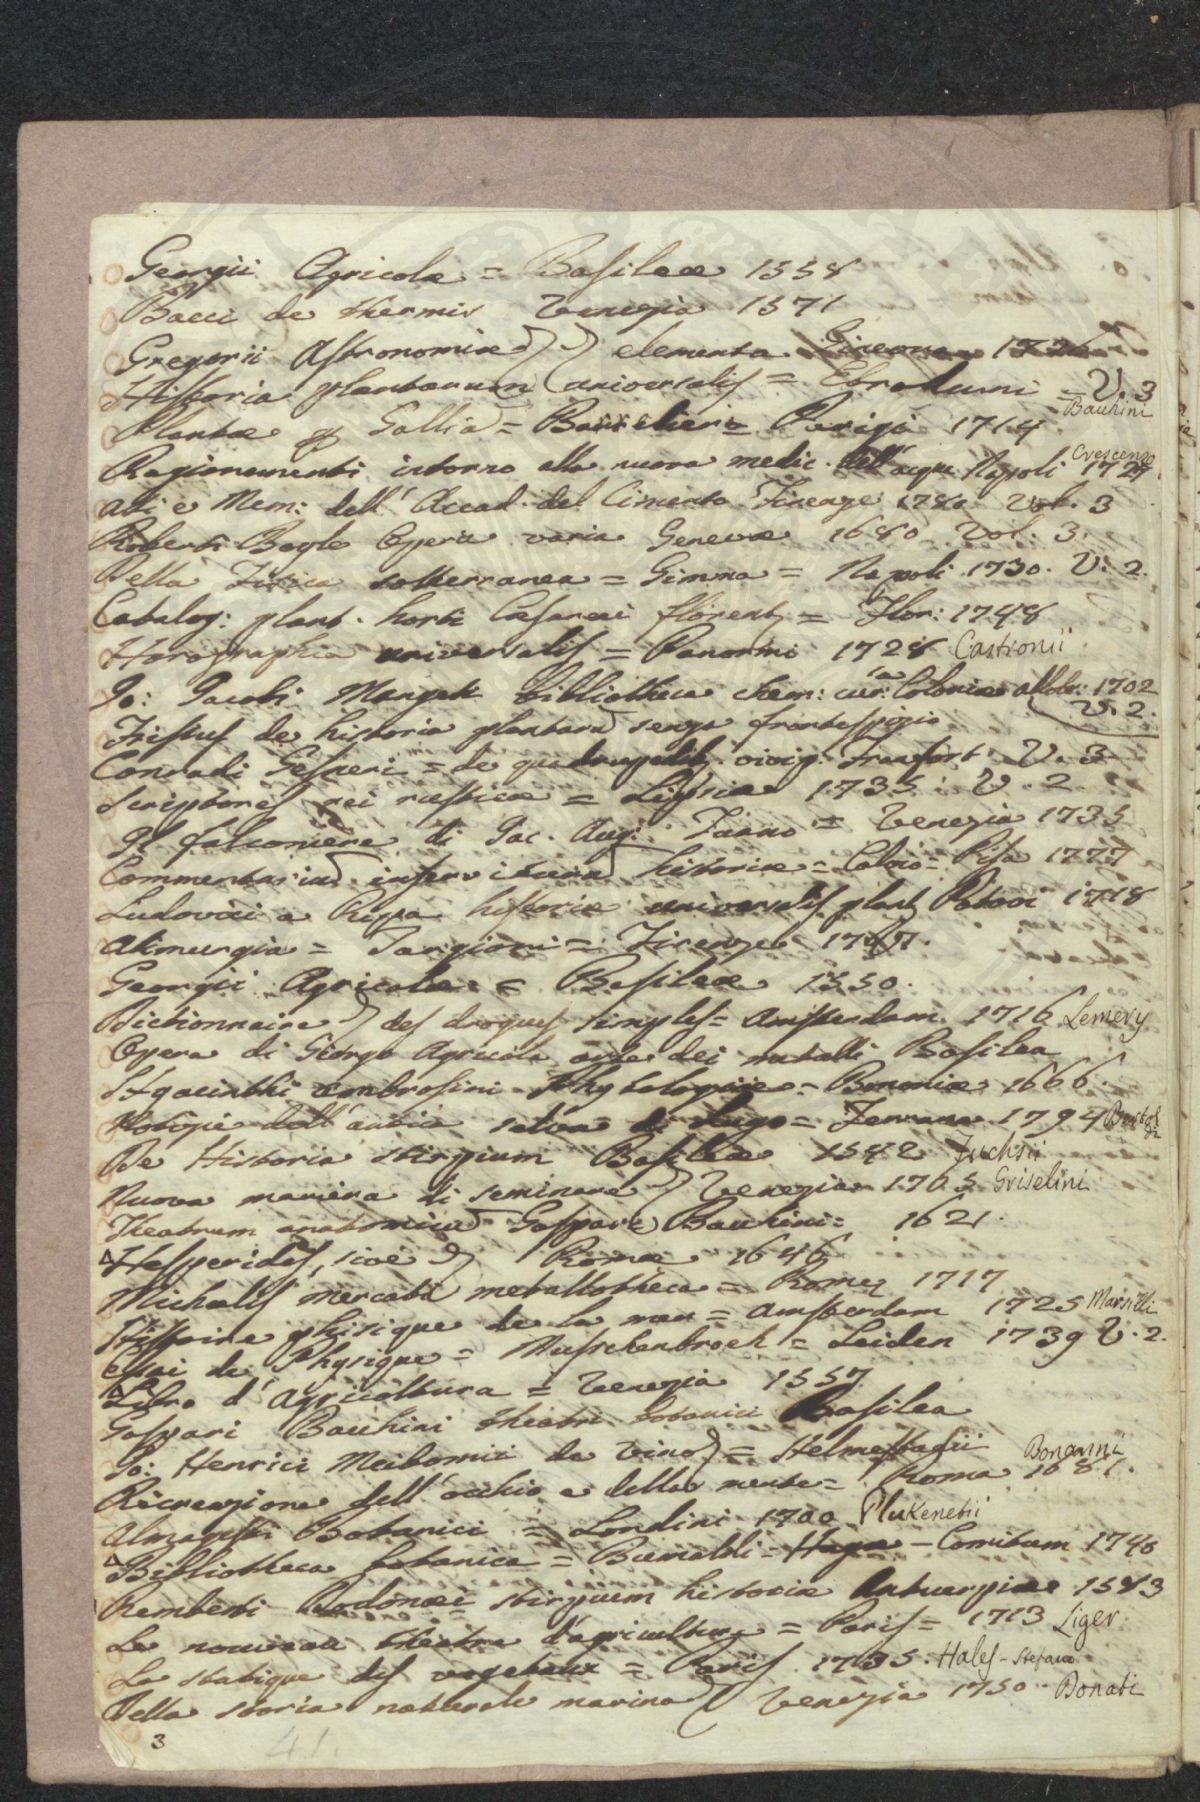 Georgii Agricolæ = Basileæ 1558
Bacci de thermis Venezia 1571
Gregorii Astronomiæ elementa Ginevra 1726
Historia plantarum universalis = Ebroduni = V. 3
Plantæ p Gallia = Barrelier = Parigi 1714 Bauhini
Ragionamenti intorno alla nuova medic. dell'acqua Napoli 1727 Crescenzo
Atti e Mem: dell'Accad. del Cimento Firenze 1780 Vol. 3
Roberti Boyle Opera varia Genevæ 1680 Vol. 3.
Della Fisica sotterranea = Gimma = Napoli 1730. V. 2.
Catalog: plant. horti Cæsarei florent = Flor: 1748
Horographia universalis = Panormi 1728 Castronii
Jo: Jacobi Mangeti bibliotheca chem: cur:ia Coloniæ allobr: 1702 V. 2.
de historia plantarū senza frontespizio
Conradi Gesneri = de quadrupedib. vivip. Francfort V. 3
Scriptores rei rusticæ = Lipsiæ 1735: V. 2
Il falconiere di Jac. Aug: Tuano = Venezia 1735
Commentariū inserviturū historiæ = Calvio = Pisa 1777
Ludovici a Rippa historiæ universalis plant Patavi 1718
Alimurgia = Targioni = Firenze 1767.
Georgii Agricolæ = Basileæ 1550.
Dictionnaire des drogues simples = Amsterdam 1716 Lemery
Opera di Giorgo Agricola arte dei metalli Basilea
Hyacinthi Ambrosini Phytologiæ = Bononiæ 1666.
Notizie dell'antica selva di Lugo = Ferrara 1794
De Historia stirpium Basileæ 1542 Fuchsii
Nuova maniera di seminare Venezia 1765 Griselini
Theatrum anatomicū Gaspare Bauhini = 1621.
Hesperides, sive Romæ 1646
Michalis mercati metallotheca = Romæ 1717
Histoire phisique de la mer = Amsterdam 1725 Marsilli
Essai de Physique = Musschenbroek = Leiden 1739 V. 2.
Libro d'Agricoltura = Venezia 1557
Gaspari Bauhini theatri botanici Basilea
Jo: Henrici Meibomii de Vino = Helmestadii
Ricreazione dell'occhio e della mente = Roma 1681. Bonanni
Almagesti Botanici = Londini 1700 Plukenetii
Bibliotheca botanica = Bumaldi = Haga - Comitum 1740
Remberti Dodonæi stirpium historiæ Antuerpiæ 1583
Le nouveau theatre d'agriculture = Paris = 1713 Liger
La statique des vegetaux = Paris 1735. Hales - Stefano
Della storia naturale marina Venezia 1750 Donati
3
41.